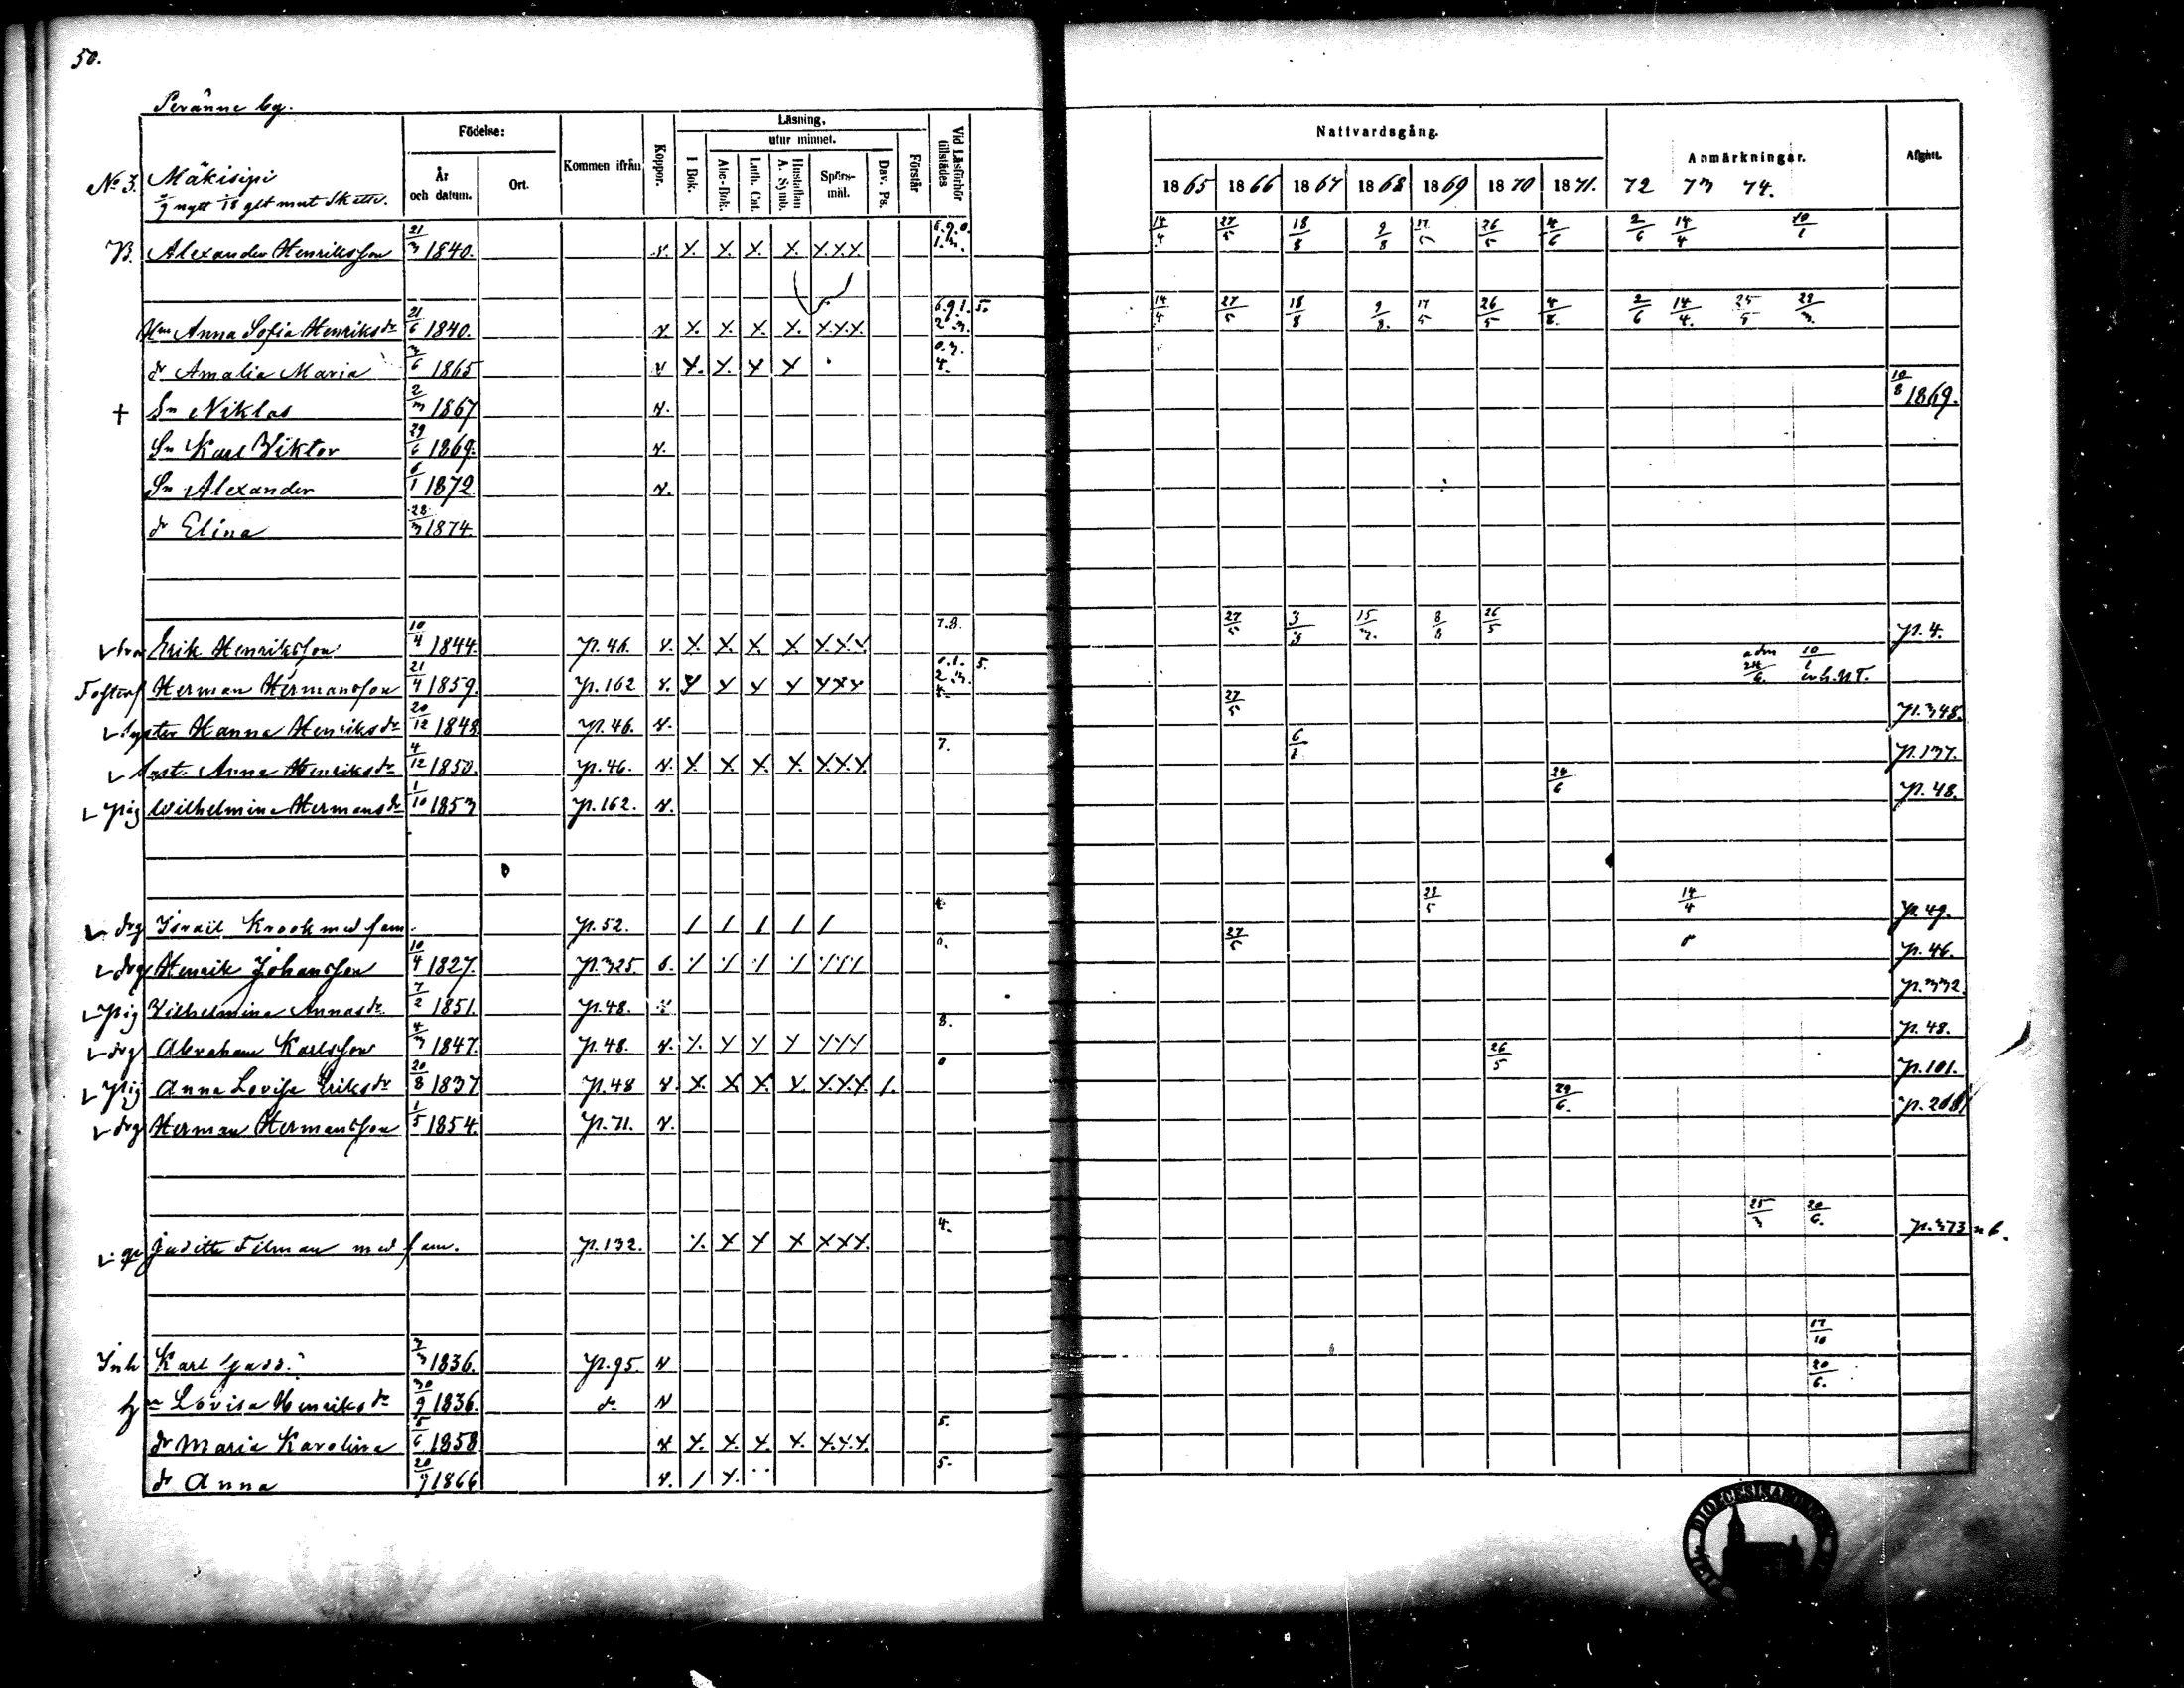 50.
Peränne by.
Födelse: Kommen ifrån Koppor. Läsning, Vid Läsförhör tillstädes Nattvardsgång. Anmärkningar. Afgått.
utur minnet.
År och datum. Ort. I Bok. Abc-Bok. Luth. Cat. Hustaflan A. Symb. Spörs-mål. Dav. Ps. Förstår
No 3. Mäkisipi 1865 1866 1867 1868 1869 1870 1871. 72 73 74.
nytt 1/18 glt mant Skatte.
B. Alexander Henriksson 21/3 1840. v. X. X. X. X. X.X.X. 14/4 27/5 18/8 9/8 17/5 26/5 4/6 2/6 14/4 10/1
Hm Anna Sofia Henriksdr 21/6 1840. v. X. X. X. X. X.X.X. 5. 14/4 27/5 18/8 9/8. 17/5 26/5 4/6. 2/6 14/4. 25/5 22/3.
dr Amalia Maria 3/6 1865 v X. X. X X
† Sn Niklas 2/3 1867 v. 10/8 1869.
Sn Karl Wiktor 29/6 1869. v.
Sn Alexander 6/1 1872 v.
dr Elina 28/3 1874.
bror Erik Henriksson 10/4 1844. p. 46. v. X. X. X. X X.X.X. 7.8. 27/5 3/3 15/3. 8/8 26/5 p. 4.
Fosters Herman Hermansson 21/4 1859. p. 162 v. X X X X XXX 5. adm 24/6. 10/1
Syster Hanna Henriksdr 20/12 1848. p. 46. v. 27/5 p. 348.
Anna Henriksdr 4/12 1850. p. 46. v. X. X. X. X. X.X.X. 7. 6/1 p. 137.
pig Wilhelmina Hermansdr 1/10 1853 p. 162. v. 24/6 p. 48.
drg Israël Krook med fam. p. 52. / / / / / 4. 22/5 14/4 p. 49.
drg Henrik Johansson 10/4 1827. p. 325. 0. 27/5 p. 46.
pig Vilhelmina Annasdr 7/2 1851. p. 48. p. 332.
drg Abraham Karlsson 4/3 1847. p. 48. v. X. X X X XXX 8. p. 48.
pig Anna Lovisa Eriksdr 20/8 1837 p. 48 v. X. X. X. X. X.X.X. /. 0 26/5 p. 101.
drg Herman Hermansson 1/5 1854. p. 71. v. 29/6. p. 208
Juditte Filman med fam. p. 132. X. X X X XXX. 4. 25/3 20/6. p. 373
Inh Karl 3/3 1836. p. 95. v 17/10
Lovisa Henriksdr 30/9 1836. d. v 20/6.
dr Maria Karolina 5/6 1858 v X. X. X. X. X.X.X. 5.
dr Anna 20/7 1866 v. / X. 5.